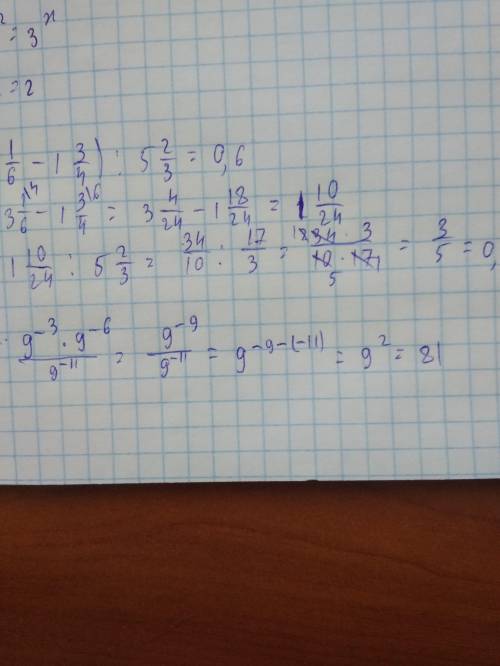 = 3^x
= 2
1/6 - 1 3/4) : 5 2/3 = 0,6
3 1/6 - 1 3/4 = 3 4/24 - 1 18/24 = 1 10/24
1 10/24 : 5 2/3 = 34/10 : 17/3 = 34 · 3 / 10 · 17 = 3/5 = 0,
9^-3 · 9^-6 / 9^-11 = 9^-9 / 9^-11 = 9^-9-(-11) = 9^2 = 81